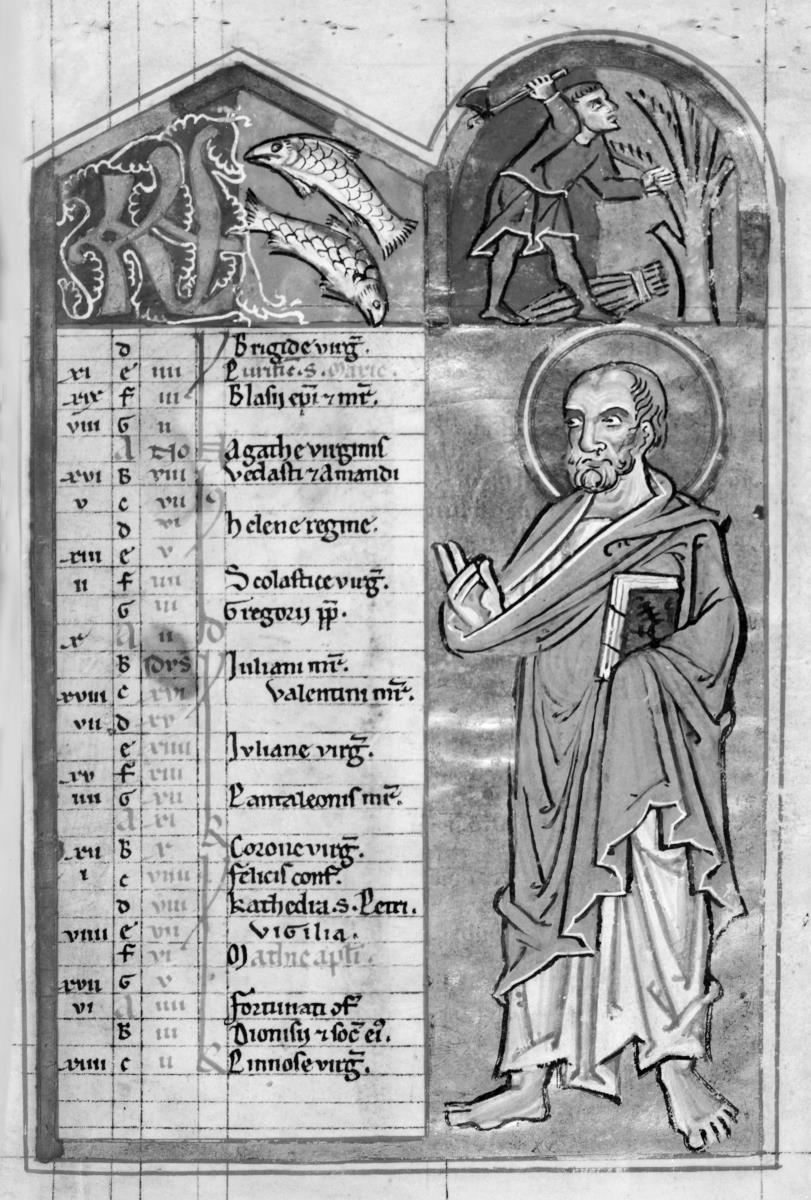 KL
d Brigide virg̅.
xi e iiii Purific̅. s. Marie.
xix F iii Blasij epi̅ ⁊ mr̅.
viii G ii
A No Agathe virginis
xvi B viii Vedasti ⁊ Amandi
v c vii
d vi helene regine.
xiii e v
ii F iiii Scolastice virg̅.
G iii Gregorij pp̅.
x A ii
B Idvs Iuliani mr̅.
xviii c xvi Valentini mr̅.
vii d xv
e xiiii Ivliane virg̅.
xv F xiii
iiii G xii Pantaleonis mr̅.
A xi
xii B x Corone virg̅.
i c viiii felicis conf̅.
d viii kathedra. s. Petri.
viiii e vii vigilia.
F vi Mathie apl̅i.
xvii G v
vi A iiii fortunati
B iii Dionisij ⁊ soc̅ ei⁹.
xiiii c ii Pinnose virg̅.